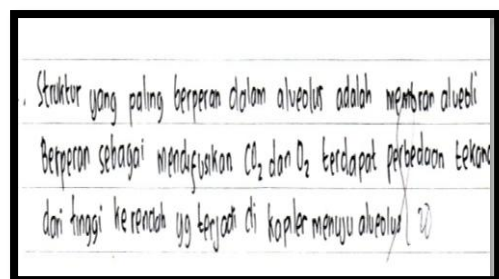 . Struktur yang paling berperan dalam alveolus adalah membran alveoli
Berperan sebagai mendifusikan CO₂ dan O₂ terdapat perbedaan tekana
dari tinggi ke rendah yg terjadi di kapiler menuju alveolus